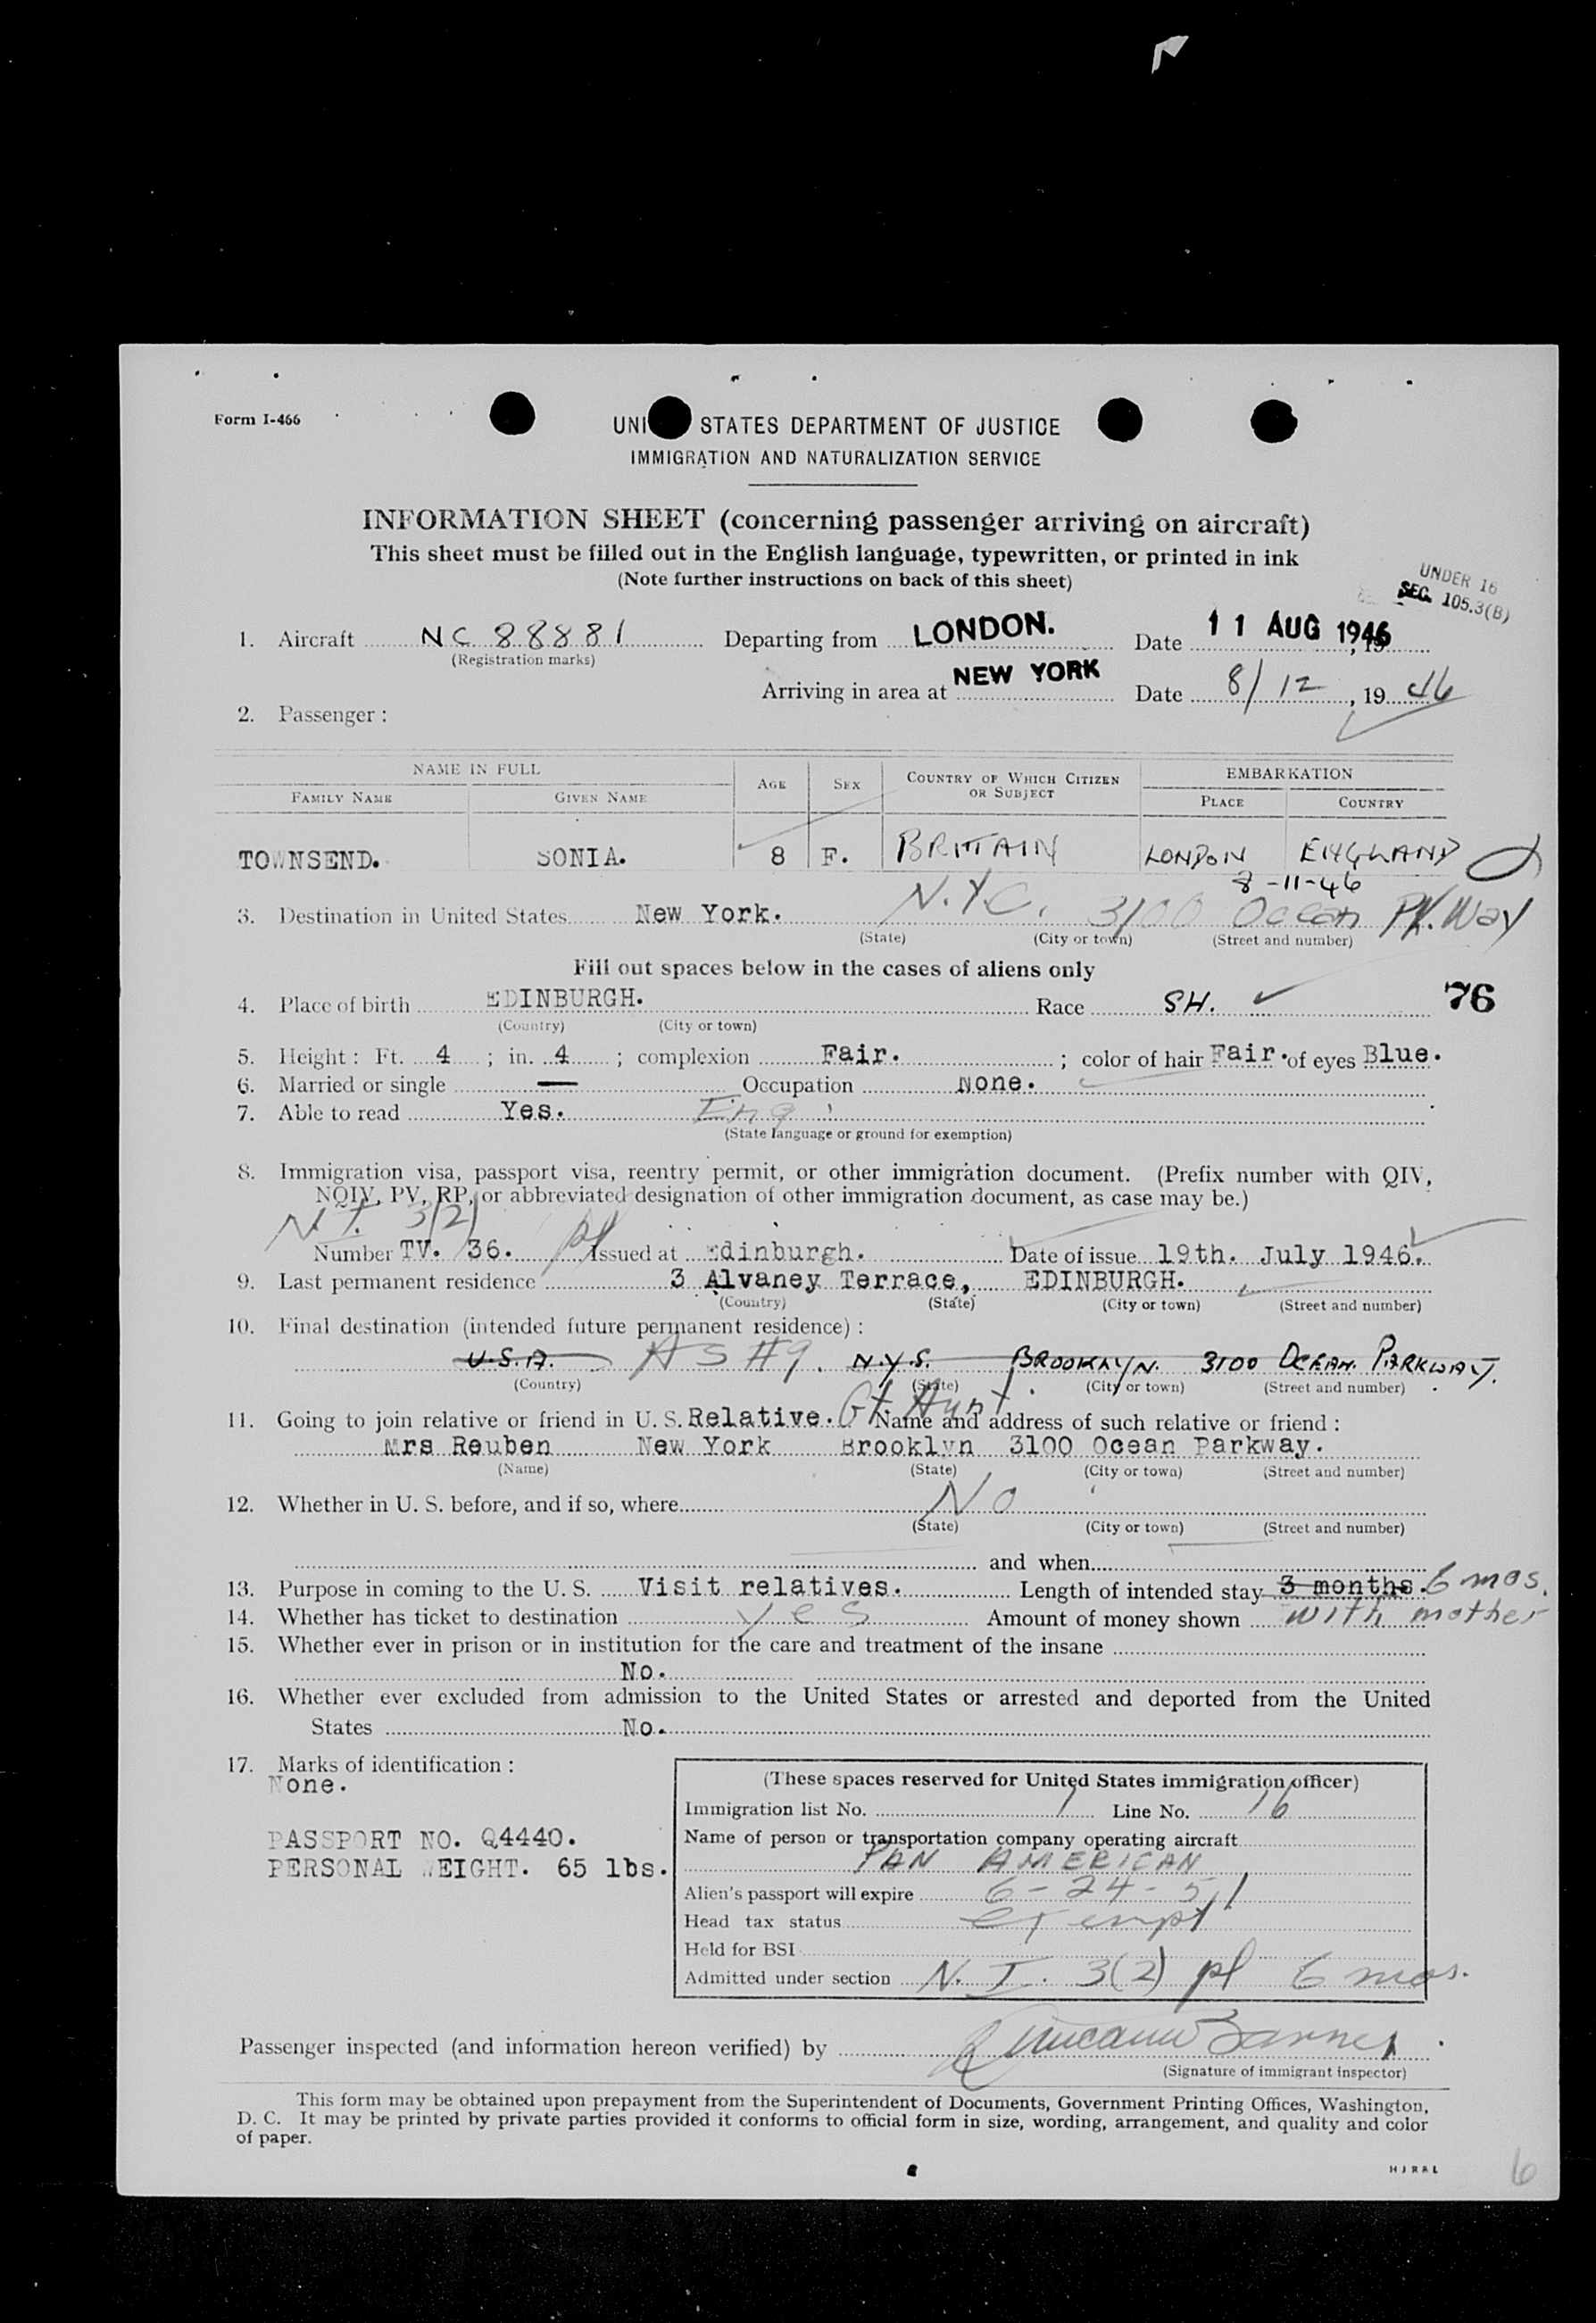 Form I-466
UNI STATES DEPARTMENT OF JUSTICE
IMMIGRATION AND NATURALIZATION SERVICE
INFORMATION SHEET (concerning passenger arriving on aircraft)
This sheet must be filled out in the English language, typewritten, or printed in ink
(Note further instructions on back of this sheet)
UNDER 16
SEC. 105.3(B)
1. Aircraft NC 88881 Departing from LONDON. Date 11 AUG 1946, 19
(Registration marks)
Arriving in area at NEW YORK Date 8/12, 19 46
2. Passenger:
NAME IN FULL AGE SEX COUNTRY OF WHICH CITIZEN OR SUBJECT EMBARKATION
FAMILY NAME GIVEN NAME PLACE COUNTRY
TOWNSEND. SONIA. 8 F. BRITAIN LONDON ENGLAND
8-11-46
3. Destination in United States New York. N.Y.C. 3100 Ocean Pk.Way
(State) (City or town) (Street and number)
Fill out spaces below in the cases of aliens only
4. Place of birth EDINBURGH. Race SH. 76
(Country) (City or town)
5. Height: Ft. 4; in. 4; complexion Fair.; color of hair Fair. of eyes Blue.
6. Married or single — Occupation None.
7. Able to read Yes. Eng.
(State language or ground for exemption)
8. Immigration visa, passport visa, reentry permit, or other immigration document. (Prefix number with QIV,
NQIV, PV, RP, or abbreviated designation of other immigration document, as case may be.)
N.I. 3(2) pl
Number TV. 36. Issued at Edinburgh. Date of issue 19th. July 1946.
9. Last permanent residence 3 Alvaney Terrace, EDINBURGH.
(Country) (State) (City or town) (Street and number)
10. Final destination (intended future permanent residence):
U.S.A. AS #9. N.Y.S. BROOKLYN. 3100 OCEAN. PARKWAY.
(Country) (State) (City or town) (Street and number)
11. Going to join relative or friend in U. S. Relative. Gt. Aunt. Name and address of such relative or friend:
Mrs Reuben New York Brooklyn 3100 Ocean Parkway.
(Name) (State) (City or town) (Street and number)
12. Whether in U. S. before, and if so, where No
(State) (City or town) (Street and number)
and when
13. Purpose in coming to the U. S. Visit relatives. Length of intended stay 3 months. 6 mos.
14. Whether has ticket to destination yes Amount of money shown with mother
15. Whether ever in prison or in institution for the care and treatment of the insane
No.
16. Whether ever excluded from admission to the United States or arrested and deported from the United
States No.
17. Marks of identification:
None.
PASSPORT NO. Q4440.
PERSONAL WEIGHT. 65 lbs.
(These spaces reserved for United States immigration officer)
Immigration list No. 1 Line No. 16
Name of person or transportation company operating aircraft
PAN AMERICAN
Alien's passport will expire 6-24-51
Head tax status exempt
Held for BSI
Admitted under section N.I. 3(2) pl 6 mos.
Passenger inspected (and information hereon verified) by
(Signature of immigrant inspector)
This form may be obtained upon prepayment from the Superintendent of Documents, Government Printing Offices, Washington,
D. C. It may be printed by private parties provided it conforms to official form in size, wording, arrangement, and quality and color
of paper.
6